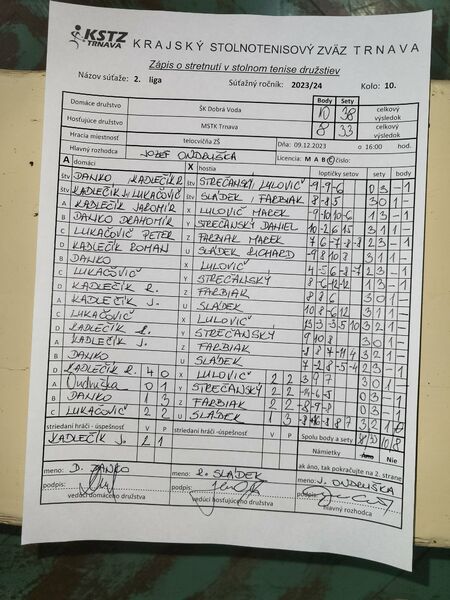 KSTZ
TRNAVA
KRAJSKÝ STOLNOTENISOVÝ ZVÄZ TRNAVA
Zápis o stretnutí v stolnom tenise družstiev
Názov súťaže: 2. liga Súťažný ročník: 2023/24 Kolo: 10.
Body Sety
Domáce družstvo ŠK Dobrá Voda 10 38 celkový výsledok
Hosťujúce družstvo MSTK Trnava 8 33 celkový výsledok
Hracia miestnosť telocvičňa ZŠ Dňa: 09.12.2023 o 16:00 hod.
Hlavný rozhodca JOZEF ONDRUŠKA Licencia: M A B C číslo:
A domáci X hostia loptičky setov sety body
štv DANKO KADLEČÍK R. štv STREČANSKÝ LULOVIČ -9 -9 -6 0 3 - 1
štv KADLEČÍK J. LUKAČOVIČ štv SLÁDEK FARBIAK 3 0 1 -
A KADLEČÍK JAROMÍR X LULOVIČ MAREK -9 -10 10 -6 1 3 - 1
B DANKO DRAHOMÍR Y STREČANSKÝ DANIEL 10 -2 6 15 3 1 1 -
C LUKAČOVIČ PETER Z FARBIAK MAREK 7 6 -7 -8 -8 2 3 - 1
D KADLEČÍK ROMAN U SLÁDEK RICHARD 3 1 1 -
B DANKO X LULOVIČ 4 -5 6 -8 -7 2 3 - 1
C LUKAČOVIČ Y STREČANSKÝ 8 -6 -12 -12 1 3 - 1
D KADLEČÍK R. Z FARBIAK 8 8 6 3 0 1 -
A KADLEČÍK J. U SLÁDEK 10 8 -6 12 3 1 1 -
C LUKAČOVIČ X LULOVIČ 13 -3 3 -5 10 3 2 1 -
D KADLEČÍK R. Y STREČANSKÝ 9 10 8 3 0 1 -
A KADLEČÍK J. Z FARBIAK -8 8 7 -11 4 3 2 1 -
B DANKO U SLÁDEK 7 -2 8 -5 -4 2 3 - 1
D KADLEČÍK R. 4 0 X LULOVIČ 2 2 3 9 7 3 0 1 -
A Ondruška 0 1 Y STREČANSKÝ 2 2 -4 -6 -5 0 3 - 1
B DANKO 1 3 Z FARBIAK 2 2 -8 -9 -8 0 3 - 1
C LUKAČOVIČ 2 2 U SLÁDEK 1 3 8 7 3 2 1
striedaní hráči -úspešnosť V P striedaní hráči -úspešnosť V P Spolu body a sety 38/33 10/8
KADLEČÍK J. 2 1 Námietky Áno Nie
ak áno, tak pokračujte na 2. strane
meno: D. DANKO meno: R. SLÁDEK meno: J. ONDRUŠKA
podpis: podpis: podpis:
vedúci domáceho družstva vedúci hosťujúceho družstva hlavný rozhodca